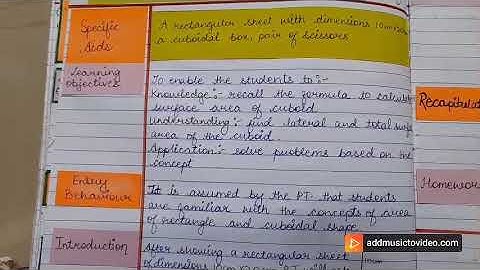 Specific
Aids
A rectangular sheet with dimensions 10cm
a cuboidal box, pair of scissors
Learning
objectives
To enable the students to :-
Knowledge :- recall the formula to calculate
surface area of cuboid
understanding :- find lateral and total surface
area of the cuboid.
Application :- solve problems based on the
concept
Entry
Behaviour
It is assumed by the PT that students
are familiar with the concepts of area
of rectangle and cuboidal shape
Introduction
After showing a rectangular sheet
of dimensions
Recapitulat
Homework
addmusictovideo.com